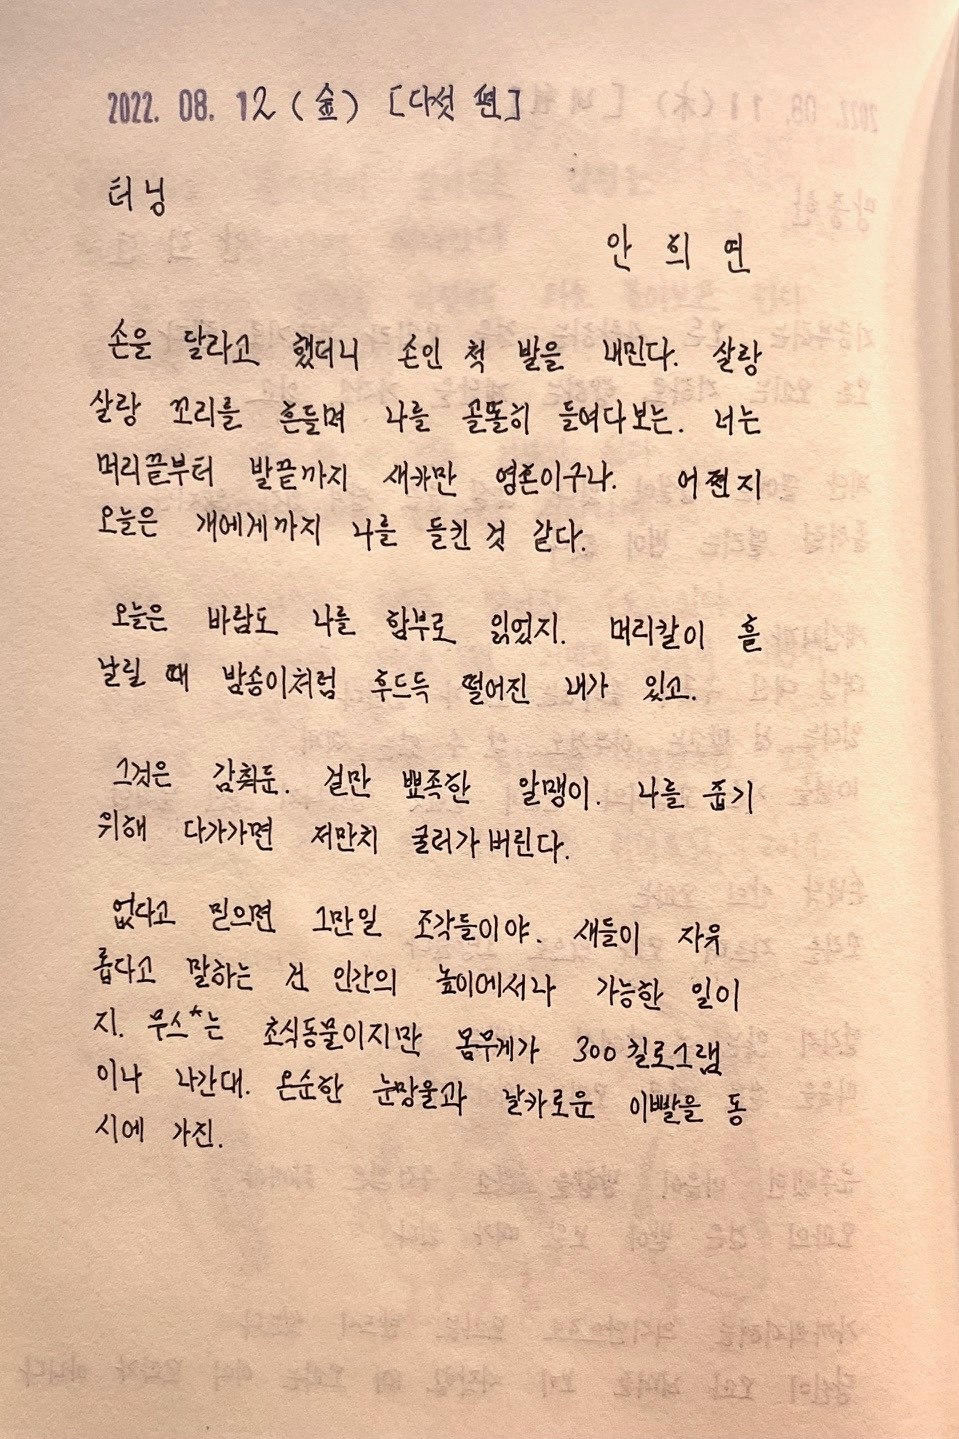 2022. 08. 12 (金) [다섯 편]
터닝
안 희 연
손을 달라고 했더니 손인 척 발을 내민다. 살랑
살랑 꼬리를 흔들며 나를 골똘히 들여다보는. 너는
머리끝부터 발끝까지 새카만 영혼이구나. 어쩐지
오늘은 개에게까지 나를 들킨 것 같다.
오늘은 바람도 나를 함부로 읽었지. 머리칼이 흩
날릴 때 밤송이처럼 후드득 떨어진 내가 있고.
그것은 감춰둔. 겉만 뾰족한 알맹이. 나를 줍기
위해 다가가면 저만치 굴러가버린다.
없다고 믿으면 그만일 조각들이야. 새들이 자유
롭다고 말하는 건 인간의 높이에서나 가능한 일이
지. 무스*는 초식동물이지만 몸무게가 300킬로그램
이나 나간대. 온순한 눈망울과 날카로운 이빨을 동
시에 가진.